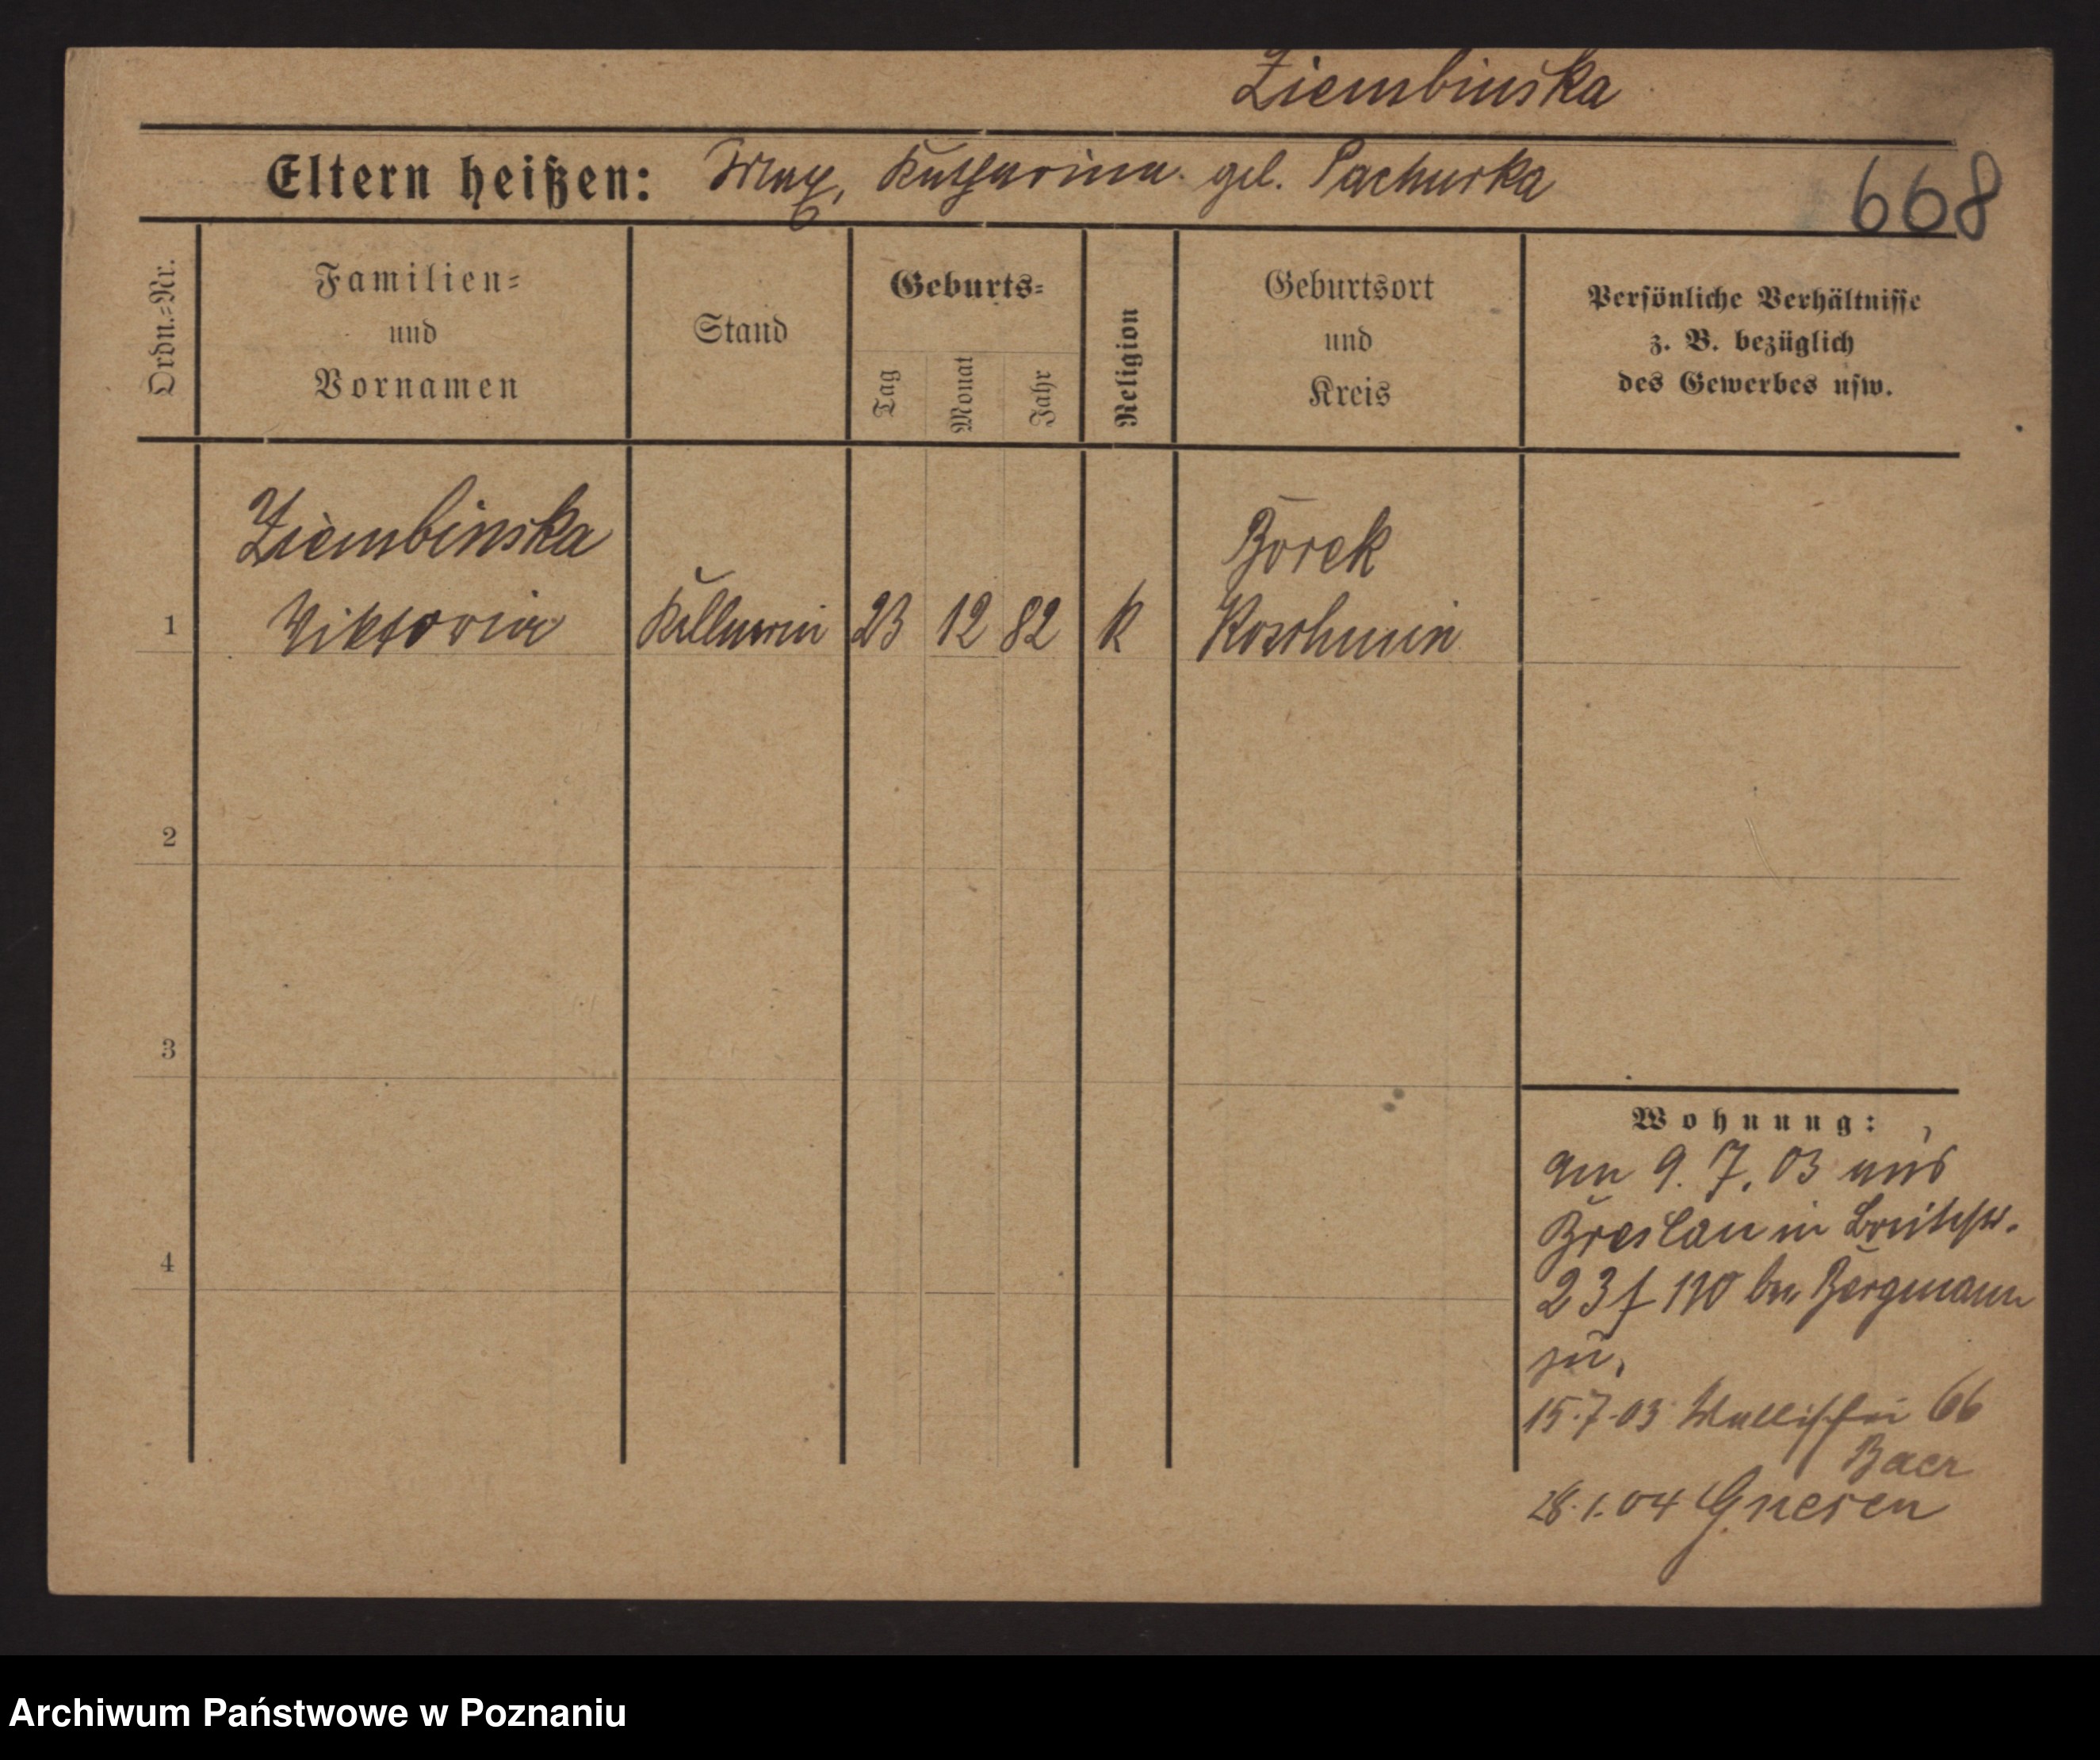 Ziembinska
Eltern heißen: Max, Katharina geb. Pachurka
668
Ordn.-Nr.
Familien-
und
Vornamen
Stand
Geburts-
Tag
Monat
Jahr
Religion
Geburtsort
und
Kreis
Persönliche Verhältnisse
z. B. bezüglich
des Gewerbes usw.
Ziembinska
Borek
1 Viktoria Kellnerin 23 12 82 K Koschmin
2
3
4
Wohnung:
am 9. 7. 03 aus
Breslau in Breitestr.
23 f bei Bergmann
zu.
15.7.03 Wallischei 66
Baer
28.1.04 Gnesen
Archiwum Państwowe w Poznaniu